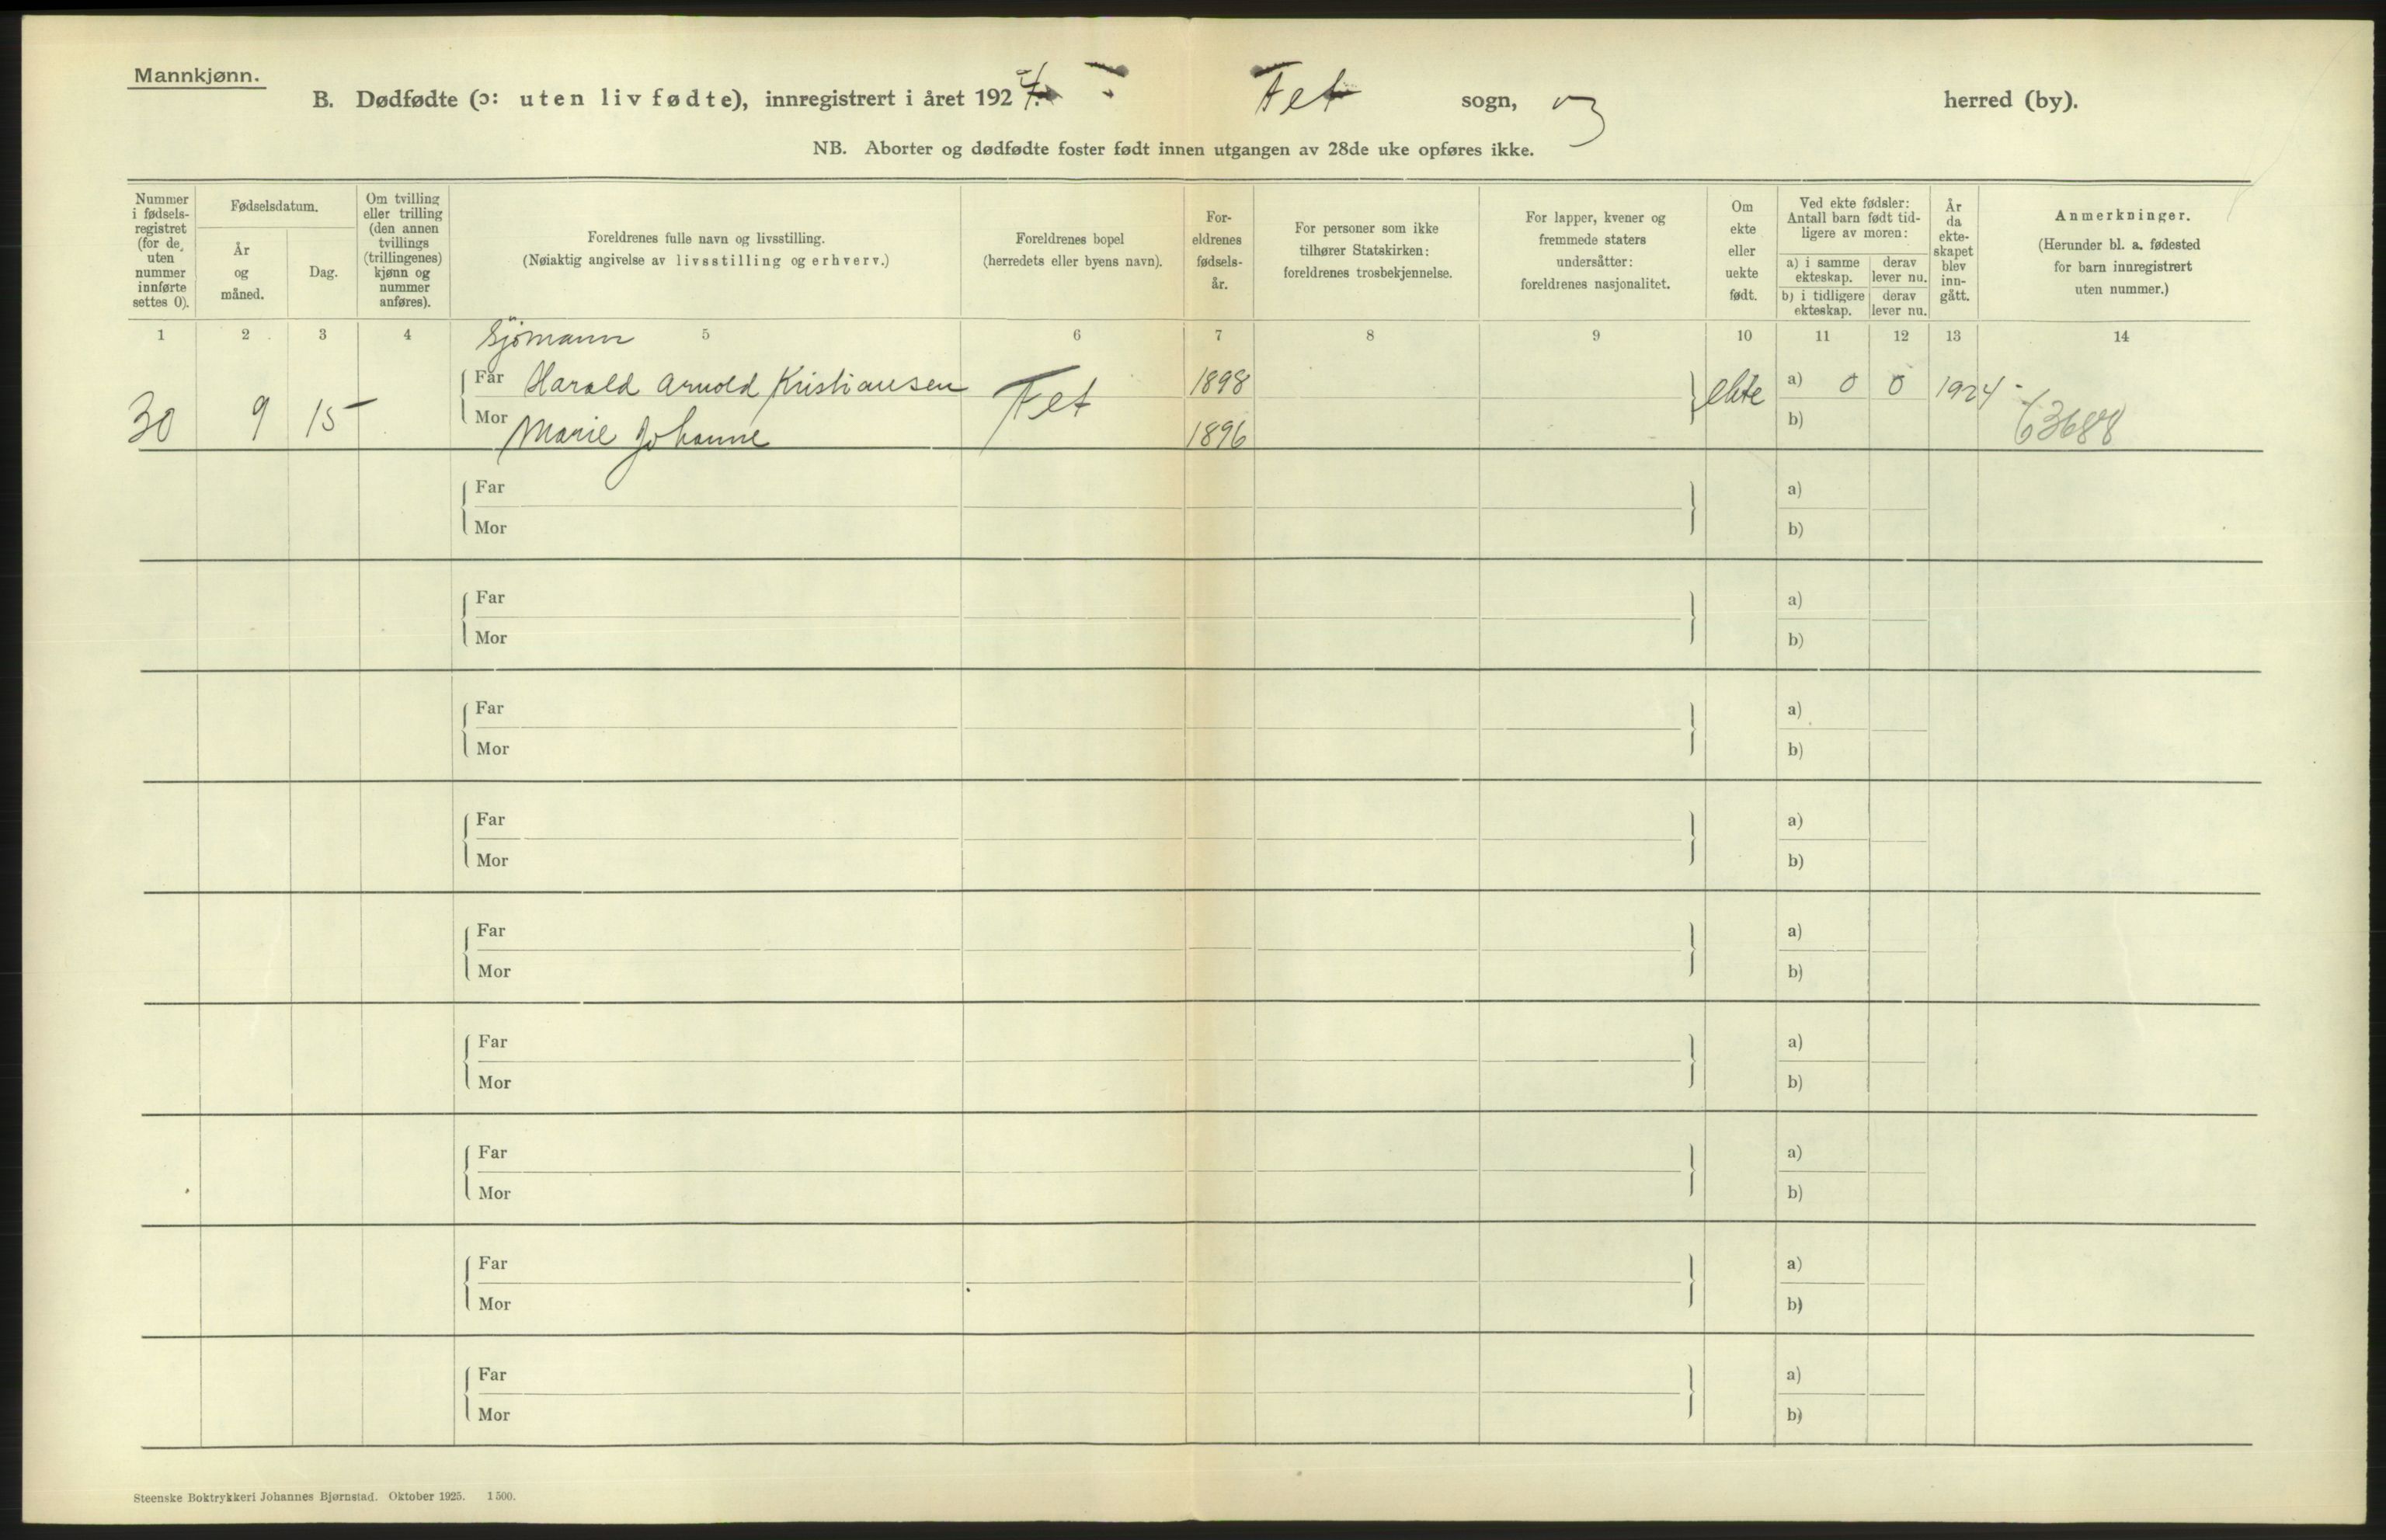 Mannkjønn.
B. Dødfødte (ɔ: uten liv fødte), innregistrert i året 192 Fet sogn, og herred (by).
NB. Aborter og dødfødte foster født innen utgangen av 28de uke opføres ikke.
Nummer i fødsels-registret (for de uten nummer innførte settes 0).
Fødselsdatum.
År og måned.
Dag.
Om tvilling eller trilling (den annen tvillings (trillingenes) kjønn og nummer anføres).
Foreldrenes fulle navn og livsstilling.
(Nøiaktig angivelse av livsstilling og erhverv.)
Foreldrenes bopel
(herredets eller byens navn).
For-eldrenes fødsels-år.
For personer som ikke tilhører Statskirken: foreldrenes trosbekjennelse.
For lapper, kvener og fremmede staters undersåtter: foreldrenes nasjonalitet.
Om ekte eller uekte født.
Ved ekte fødsler: Antall barn født tid-ligere av moren:
a) i samme ekteskap. derav lever nu.
b) i tidligere ekteskap. derav lever nu.
År da ekte-skapet blev inn-gått.
Anmerkninger.
(Herunder bl. a. fødested for barn innregistrert uten nummer.)
1 2 3 4 5 6 7 8 9 10 11 12 13 14
Sjömann
Far Harald Arnold Kristiansen 1898 a) 0 0 1924
30 9 15 Fet ekte 63688
Mor Marie Johanne 1896 b)
Far a)
Mor b)
Far a)
Mor b)
Far a)
Mor b)
Far a)
Mor b)
Far a)
Mor b)
Far a)
Mor b)
Far a)
Mor b)
Far a)
Mor b)
Far a)
Mor b)
Steenske Boktrykkeri Johannes Bjørnstad. Oktober 1925. 1500.